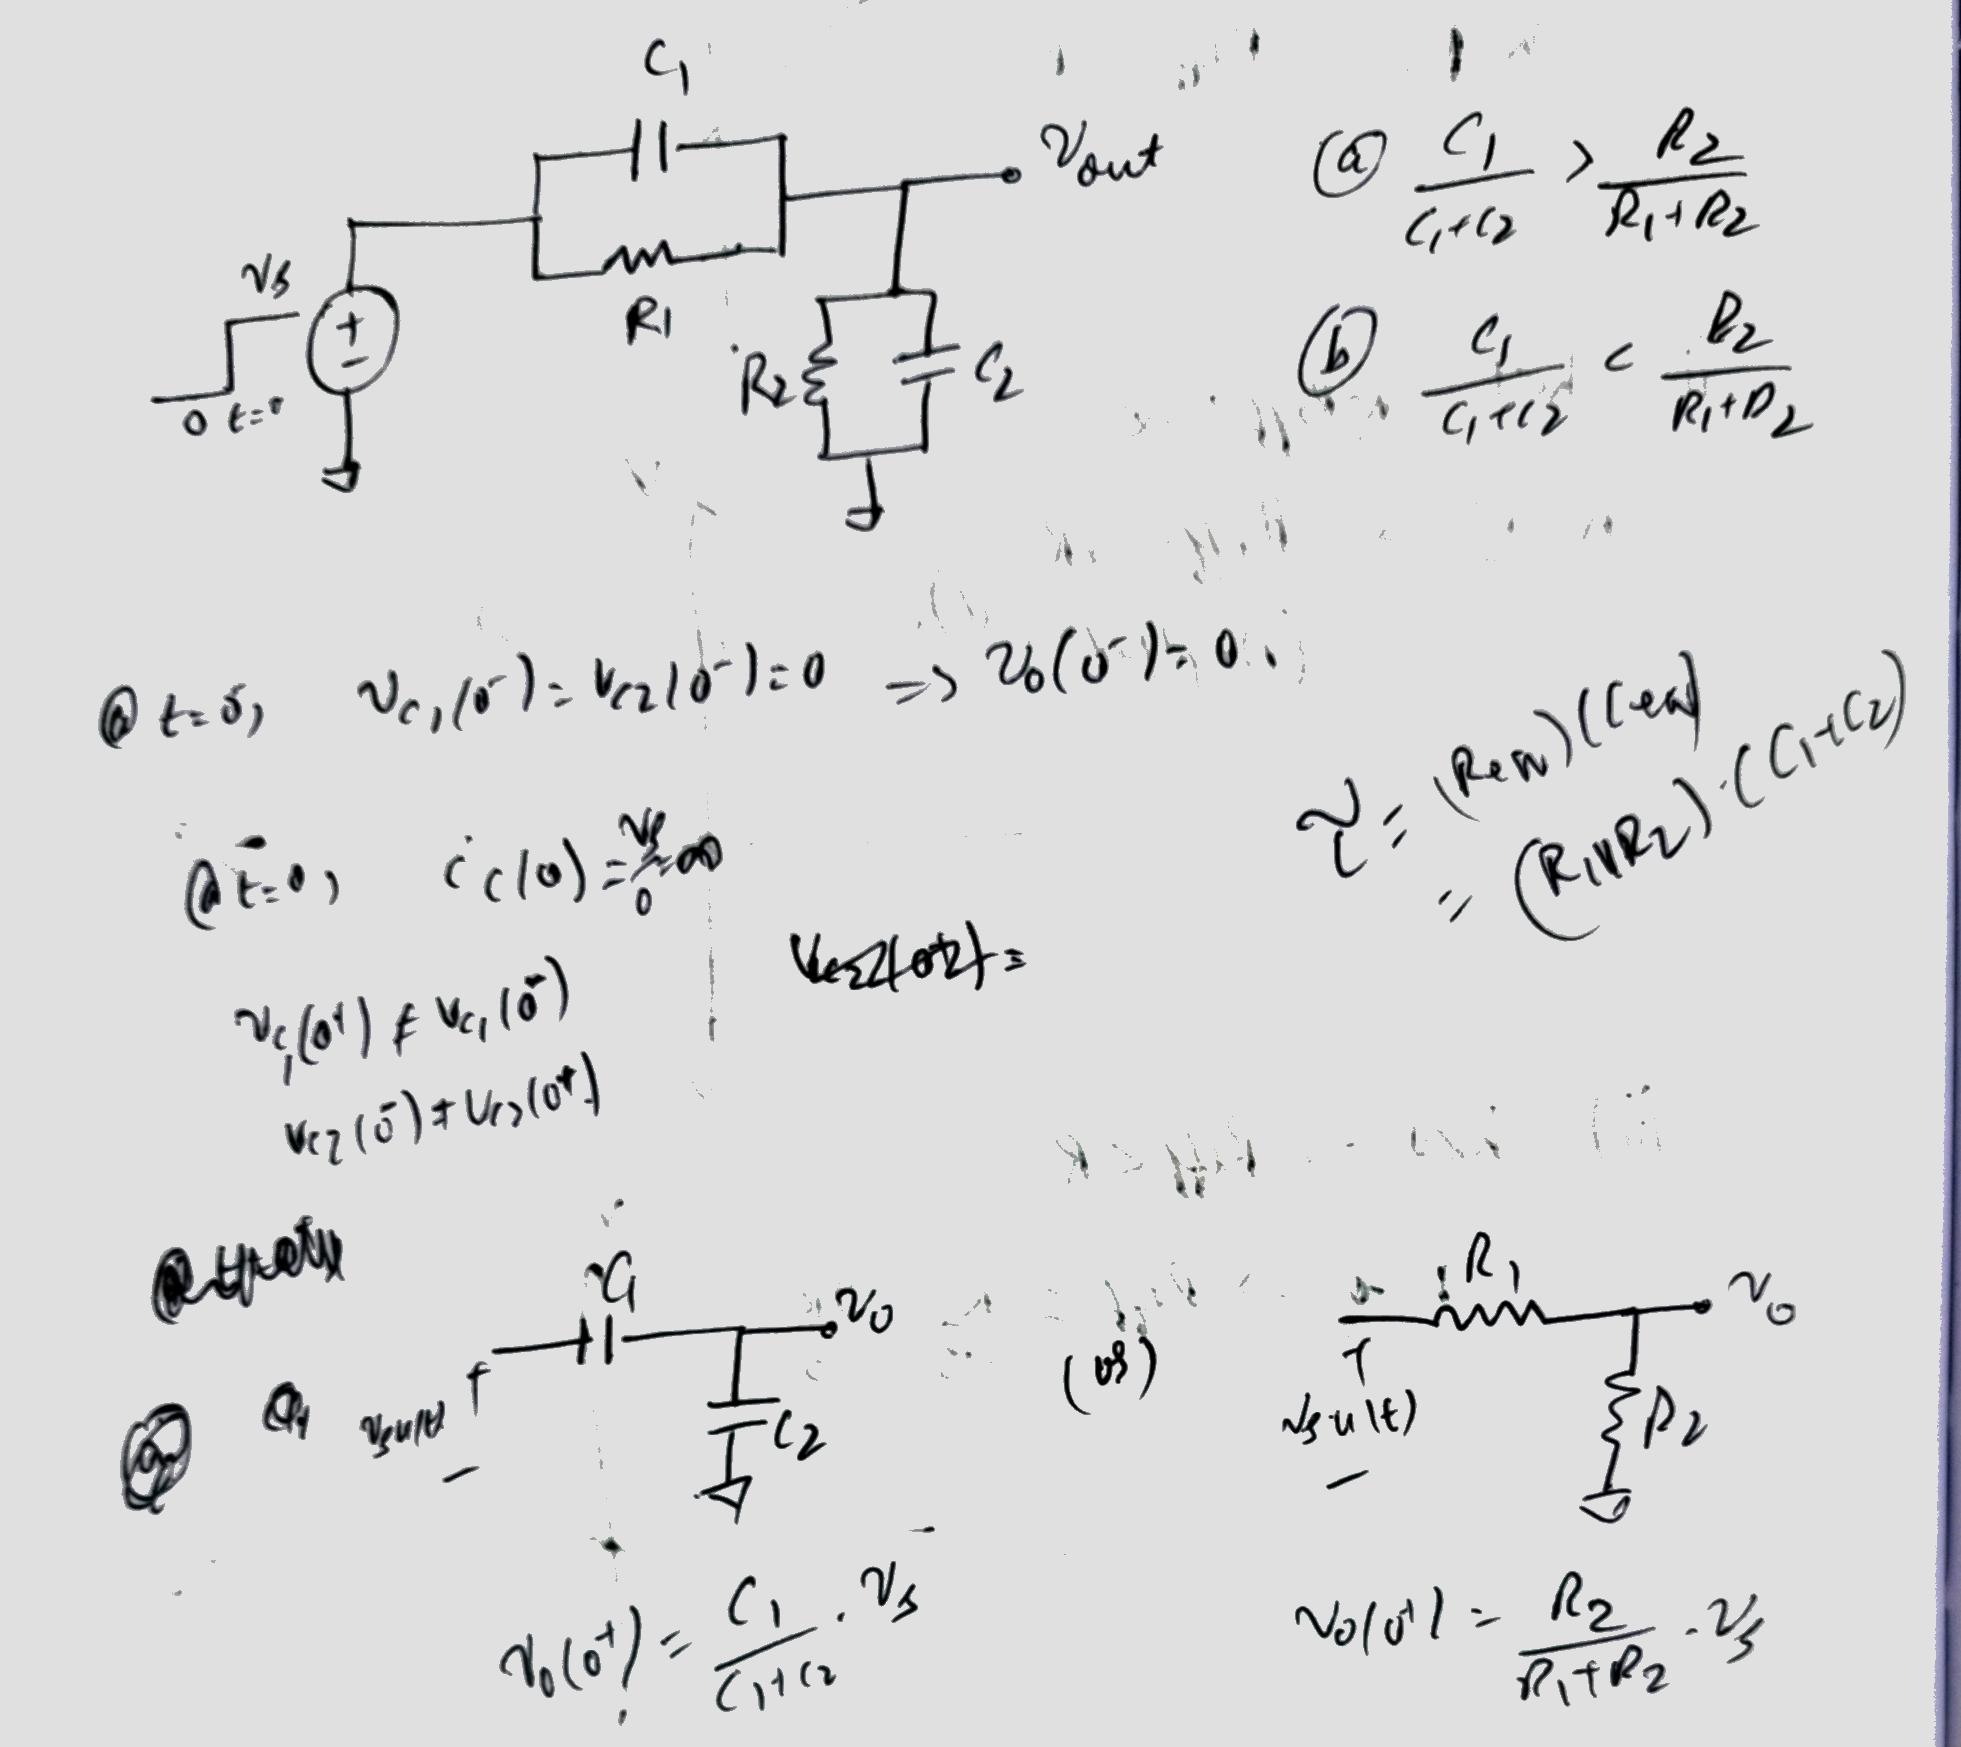 C₁
Vout
Vs
0 t=0
R1
R2
C2
ⓐ C₁/(C₁+C2) > R2/(R₁+R2)
ⓑ C₁/(C₁+C2) < R2/(R₁+R2)
@ t=0⁻, Vc₁(0⁻)=Vc2(0⁻)=0 => V₀(0⁻)=0
τ = (Req)(Ceq)
= (R₁||R2)·(C₁+C2)
@ t=0, ic(0)=Vs/0=∞
Vc₁(0⁺) ≠ Vc₁(0⁻)
Vc2(0⁻) ≠ Vc2(0⁺)
C₁
V₀
Vsu(t)
C2
(or)
R₁
V₀
Vs·u(t)
R2
V₀(0⁺) = C₁/(C₁+C2) · Vs
V₀(0⁺) = R2/(R₁+R2) · Vs